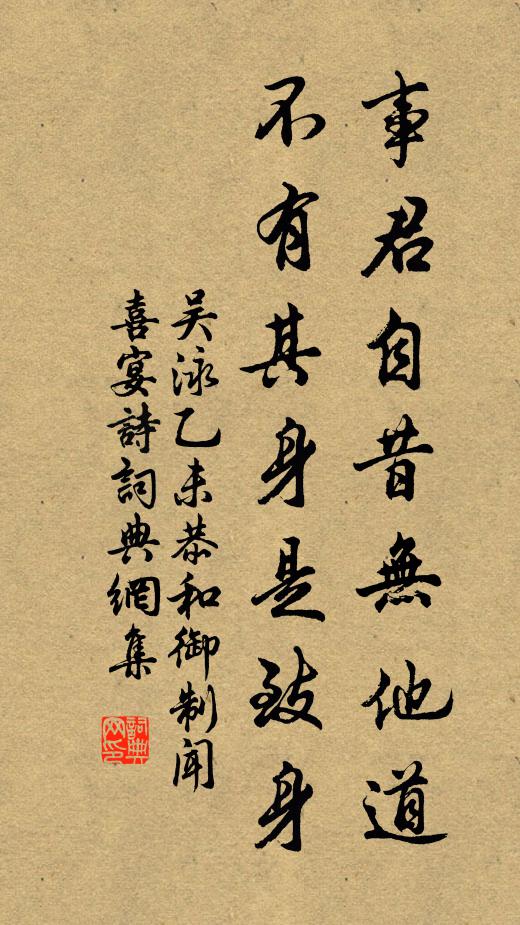 事君自昔無他道
不有其身是致身
吴泳乙未恭和御制聞
喜宴詩詞典網集
詞典网印